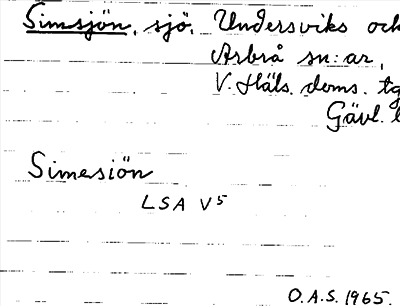 Simsjön, sjö, Undersviks och
Arbrå sn:ar,
V. Häls. doms. tg
Gävl. l
Simesiön
LSA V5
O.A.S. 1965.